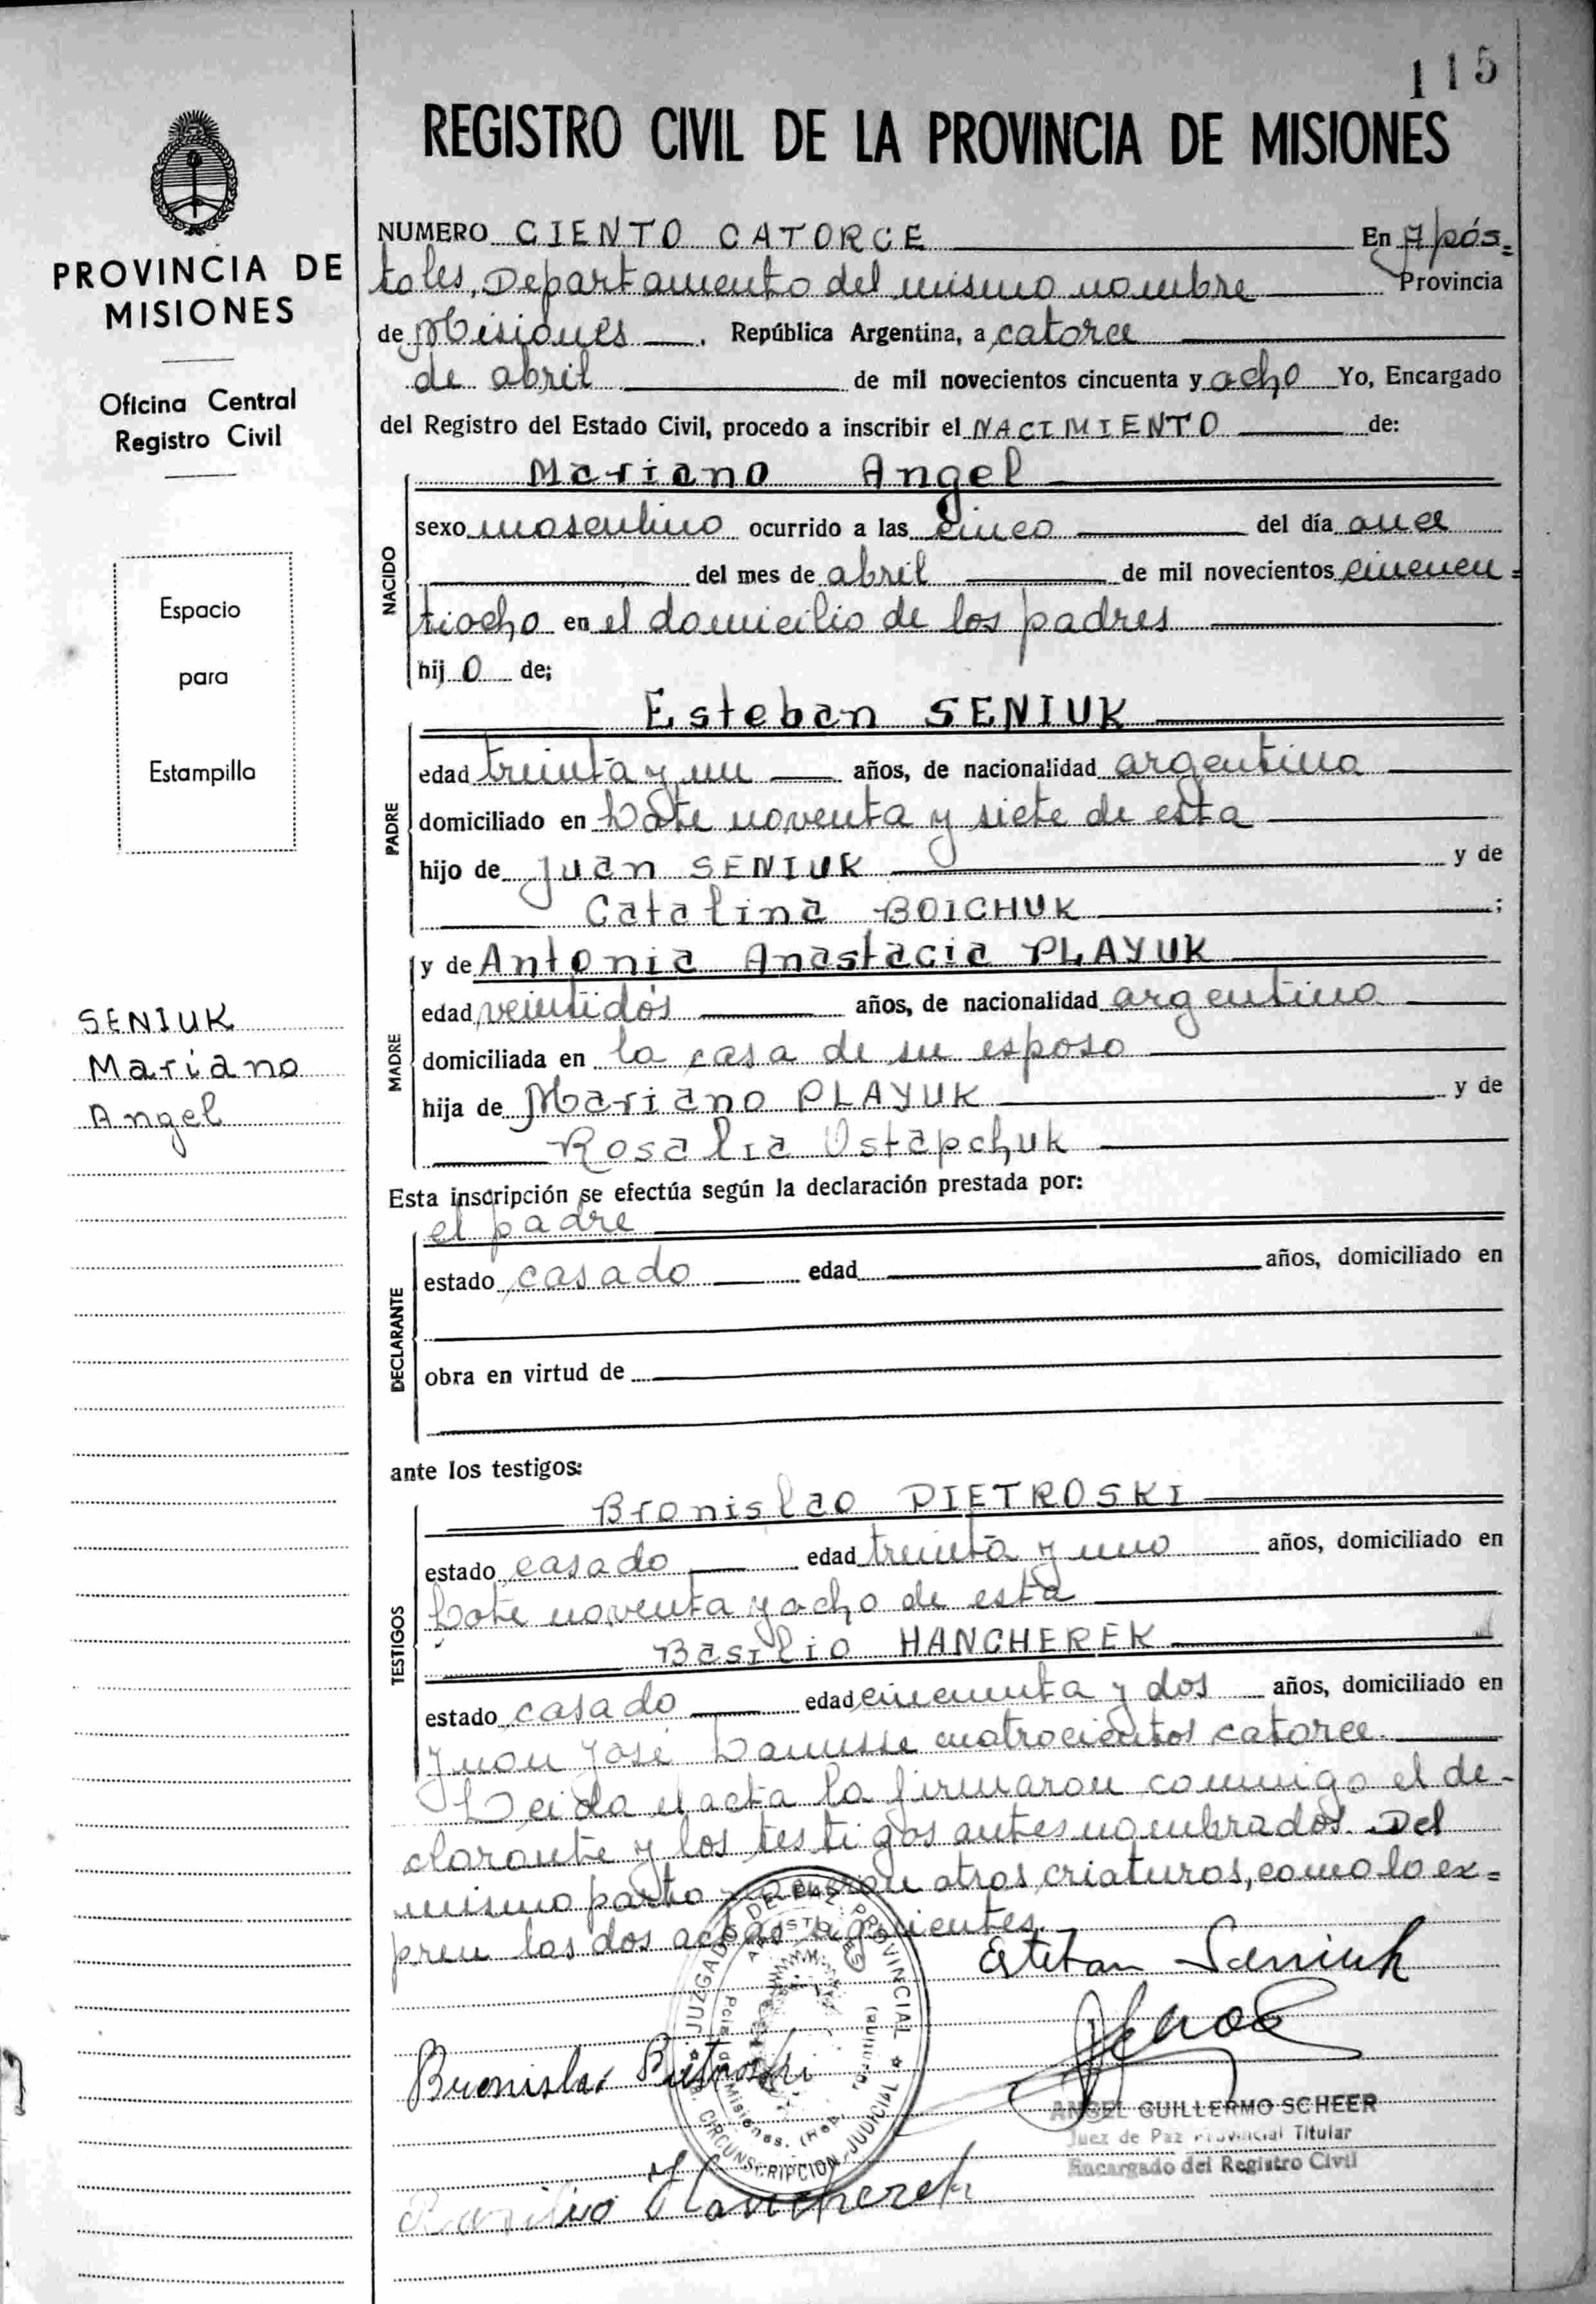 115
REGISTRO CIVIL DE LA PROVINCIA DE MISIONES
PROVINCIA DE
MISIONES
Oficina Central
Registro Civil
Espacio
para
Estampilla
SENIUK
Mariano
Angel
NUMERO CIENTO CATORCE En Após=
toles, Departamento del mismo nombre Provincia
de Misiones . República Argentina, a catorce
de abril de mil novecientos cincuenta y ocho Yo, Encargado
del Registro del Estado Civil, procedo a inscribir el NACIMIENTO de:
Mariano Angel
NACIDO
sexo masculino ocurrido a las cinco del día once
del mes de abril de mil novecientos cincuen=
tiocho en el domicilio de los padres
hij o de;
Esteban SENIUK
PADRE
edad treinta y un años, de nacionalidad argentina
domiciliado en Lote noventa y siete de esta
hijo de Juan SENIUK y de
Catalina BOICHUK ;
y de Antonia Anastacia PLAYUK
MADRE
edad veintidós años, de nacionalidad argentina
domiciliada en la casa de su esposo
hija de Mariano PLAYUK y de
Rosalia Ostapchuk
Esta inscripción se efectúa según la declaración prestada por:
el padre
DECLARANTE
estado casado edad años, domiciliado en
obra en virtud de
ante los testigos:
Bronislao PIETROSKI
TESTIGOS
estado casado edad treinta y uno años, domiciliado en
Lote noventa y ocho de esta
Basilio HANCHEREK
estado casado edad cincuenta y dos años, domiciliado en
Juan José Lanusse cuatrocientos catorce.
Leida el acta la firmaron conmigo el de-
clarante y los testigos antes nombrados. Del
mismo parto nacieron otras criaturas, como lo ex=
pren las dos actas siguientes.
Esteban Seniuk
JUZGADO DE PAZ PROVINCIAL
CIRCUNSCRIPCION JUDICIAL
Misiones.
Bronislao Pietroski
ANGEL GUILLERMO SCHEER
Juez de Paz Provincial Titular
Encargado del Registro Civil
Basilio Hancherek